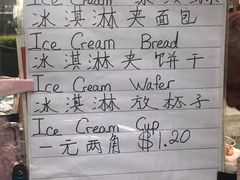 Ice Cream 冰淇淋
冰淇淋夹面包
Ice Cream Bread
冰淇淋夹饼干
Ice Cream Wafer
冰淇淋放杯子
Ice Cream Cup
一元两角 $1.20